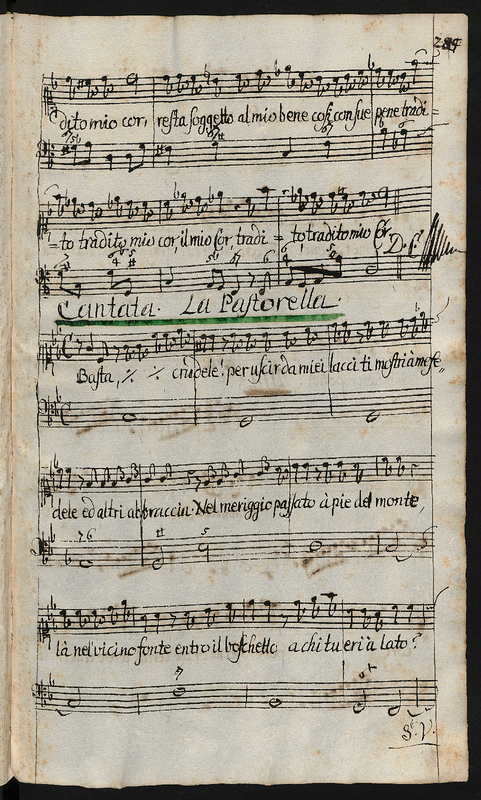 dito mio cor, resta soggetto al mio bene così con sue pene tradi=
=to tradito mio cor, il mio Cor, tradi = to, tradito mio Cor.
D. C.
Cantata. La Pastorella.
Basta, ./. ./. crudele! per uscir da miei lacci ti mostri à me fe,,
dele ed altri abbraccia. Nel meriggio passato à pie del monte,
là nel vicino fonte entro il boschetto a chi tu eri à lato?
S. V.